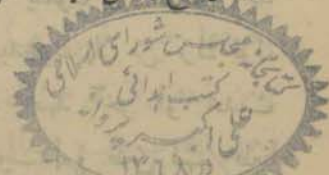 کتابخانه مجلس شورای اسلامی
کتب اهدائی
علی اکبر پروانه
۱۳۶۸